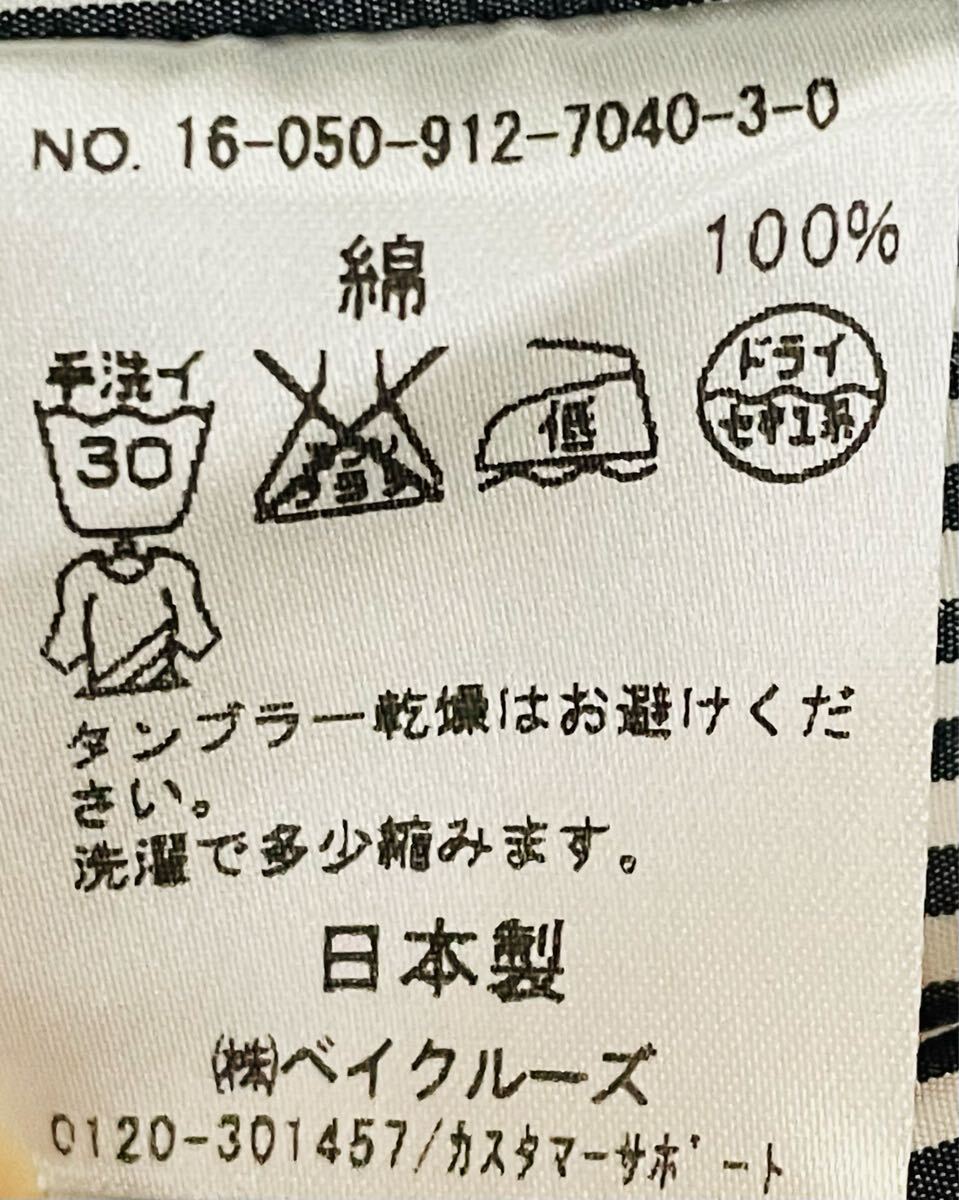 NO. 16-050-912-7040-3-0
綿 100%
手洗イ
30
エンソ
サラシ
低
ドライ
セキユ系
タンブラー乾燥はお避けくだ
さい。
洗濯で多少縮みます。
日本製
㈱ベイクルーズ
0120-301457/カスタマーサポート